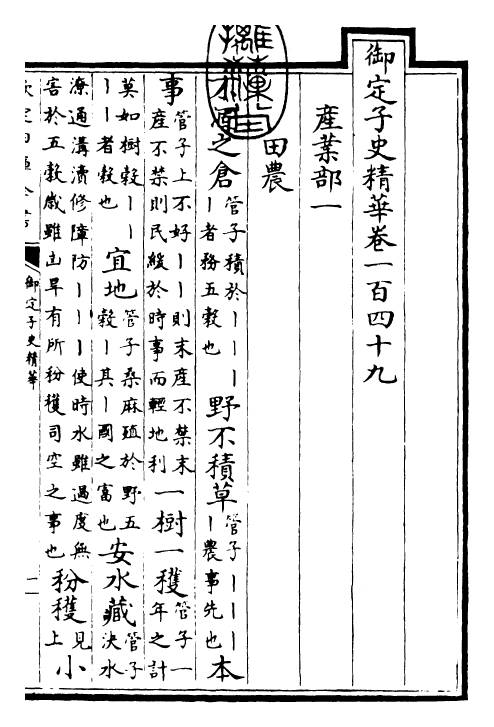 御定子史精華卷一百四十九
産業部一
田農
不涸之倉管子積於丨丨丨丨者務五穀也野不積草管子丨丨丨丨農事先也本
事管子上不好丨丨則末產不禁末產不禁則民緩於時事而輕地利一樹一穫管子一年之計
莫如樹穀丨丨丨丨者穀也宜地管子桑麻殖於野五穀丨其丨國之富也安水藏管子決水
潦通溝瀆修障防丨丨丨使時水雖過度無害於五穀歲雖凶旱有所秎穫司空之事也秎穫見上小
御定子史精華